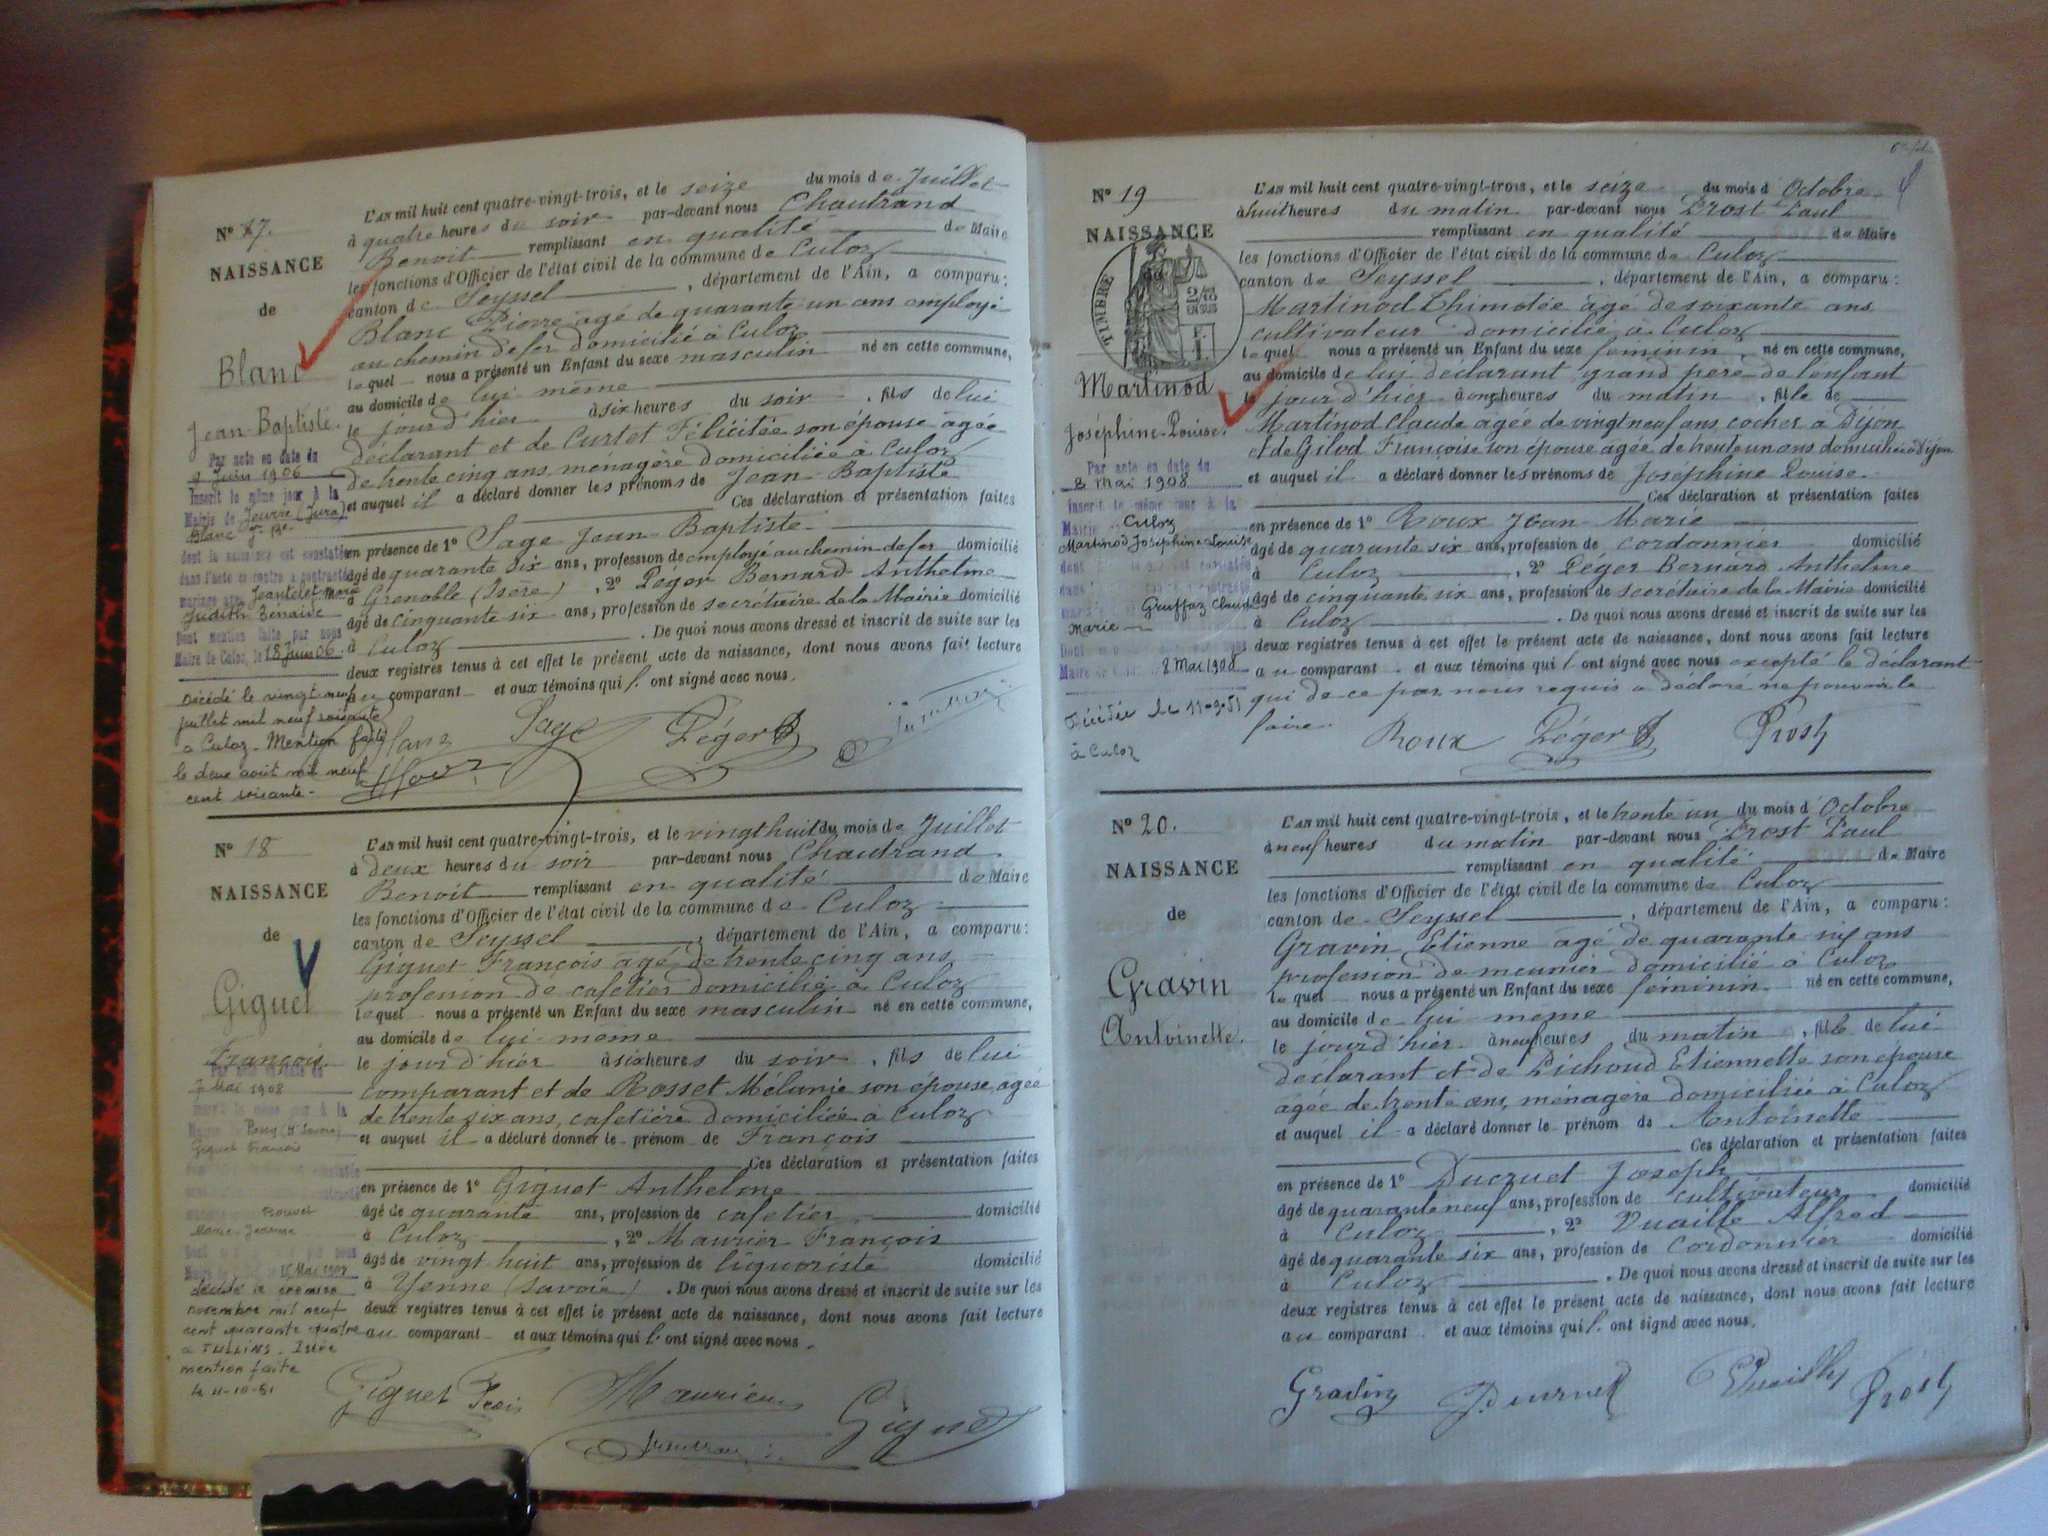 N° 17.
NAISSANCE
de
Blanc
Jean-Baptiste.
Par acte en date du
9 Juin 1906
Inscrit le même jour à la
Mairie de Jeurre (Jura)
Blanc Jn Bte
dont la naissance est constatée
dans l'acte ci contre a contracté
mariage avec Jeantelet Marie
Judith Bénaive
Dont mention faite par nous
Maire de Culoz, le 18 Juin 06.
Décédé le vingt neuf
juillet mil neuf soixante
a Culoz - Mention faite
le deux août mil neuf
cent soixante -
L'AN mil huit cent quatre-vingt-trois, et le seize du mois de Juillet
à quatre heures du soir par-devant nous Chautrand
Benoit remplissant en qualité de Maire
les fonctions d'Officier de l'état civil de la commune de Culoz
canton de Seyssel, département de l'Ain, a comparu:
Blanc Pierre âgé de quarante un ans employé
au chemin de fer domicilié à Culoz
lequel nous a présenté un Enfant du sexe masculin né en cette commune,
au domicile de lui même
le jour d'hier à six heures du soir, fils de lui
déclarant et de Curtet Félicitée son épouse âgée
de trente cinq ans, ménagère domiciliée à Culoz
et auquel il a déclaré donner les prénoms de Jean-Baptiste
Ces déclaration et présentation faites
en présence de 1° Sage Jean-Baptiste
âgé de quarante six ans, profession de employé au chemin de fer domicilié
à Grenoble (Isère), 2° Péger Bernard Anthelme
âgé de cinquante six ans, profession de secrétaire de la Mairie domicilié
à Culoz. De quoi nous avons dressé et inscrit de suite sur les
deux registres tenus à cet effet le présent acte de naissance, dont nous avons fait lecture
au comparant et aux témoins qui l'ont signé avec nous.
Blanc Sage PégerB
N° 18
NAISSANCE
de
Giguet
François.
Par acte en date du
7 Mai 1908
inscrit le même jour à la
Mairie de Passy (Hte Savoie)
Giguet François
Bouvet
Marie-Jeanne
15 Mai 1908
décédé le premier
novembre mil neuf
cent quarante quatre
a TULLINS - Isère
mention faite
le 4-10-51
L'AN mil huit cent quatre-vingt-trois, et le vingt huit du mois de Juillet
à deux heures du soir par-devant nous Chautrand
Benoit remplissant en qualité de Maire
les fonctions d'Officier de l'état civil de la commune de Culoz
canton de Seyssel, département de l'Ain, a comparu:
Giguet François âgé de trente cinq ans
profession de cafetier domicilié à Culoz
lequel nous a présenté un Enfant du sexe masculin né en cette commune,
au domicile de lui-même
le jour d'hier à six heures du soir, fils de lui
comparant et de Rosset Mélanie son épouse, âgée
de trente six ans, cafetière domiciliée à Culoz
et auquel il a déclaré donner le prénom de François
Ces déclaration et présentation faites
en présence de 1° Giguet Anthelme
âgé de quarante ans, profession de cafetier domicilié
à Culoz, 2° Maurier François
âgé de vingt huit ans, profession de liquoriste domicilié
à Yenne (Savoie). De quoi nous avons dressé et inscrit de suite sur les
deux registres tenus à cet effet le présent acte de naissance, dont nous avons fait lecture
au comparant et aux témoins qui l'ont signé avec nous.
Giguet Fcois Maurier Giguet
N° 19
NAISSANCE
TIMBRE
2/10
EN SUS
Martinod
Joséphine-Louise.
Par acte en date du
8 Mai 1908
inscrit le même jour à la
Mairie de Culoz
Martinod Joséphine Louise
Gruffaz Claude
Marie
Maire de Culoz, 8 Mai 1908
Décédée le 11-9-51
à Culoz
L'AN mil huit cent quatre-vingt-trois, et le seize du mois d'Octobre
à huit heures du matin par-devant nous Prost Paul
remplissant en qualité de Maire
les fonctions d'Officier de l'état civil de la commune de Culoz
canton de Seyssel, département de l'Ain, a comparu:
Martinod Thimotée âgé de soixante ans
cultivateur domicilié à Culoz
lequel nous a présenté un Enfant du sexe féminin, né en cette commune,
au domicile de lui déclarant grand père de l'enfant
le jour d'hier à onze heures du matin, fille de
Martinod Claude âgé de vingt neuf ans, cocher à Dijon
et de Gilod Françoise son épouse âgée de trente un ans domiciliée à Dijon
et auquel il a déclaré donner les prénoms de Joséphine Louise.
Ces déclaration et présentation faites
en présence de 1° Roux Jean-Marie
âgé de quarante six ans, profession de cordonnier domicilié
à Culoz, 2° Péger Bernard Anthelme
âgé de cinquante six ans, profession de secrétaire de la Mairie domicilié
à Culoz. De quoi nous avons dressé et inscrit de suite sur les
deux registres tenus à cet effet le présent acte de naissance, dont nous avons fait lecture
au comparant et aux témoins qui l'ont signé avec nous excepté le déclarant
qui de ce par nous requis a déclaré ne pouvoir le
faire. Roux PégerB Prost
N° 20.
NAISSANCE
de
Gravin
Antoinette.
L'AN mil huit cent quatre-vingt-trois, et le trente un du mois d'Octobre
à neuf heures du matin par-devant nous Prost Paul
remplissant en qualité de Maire
les fonctions d'Officier de l'état civil de la commune de Culoz
canton de Seyssel, département de l'Ain, a comparu:
Gravin Etienne âgé de quarante six ans
profession de meunier domicilié à Culoz
lequel nous a présenté un Enfant du sexe féminin né en cette commune,
au domicile de lui-même
le jour d'hier à neuf heures du matin, fille de lui
déclarant et de Pichoud Etiennette son épouse
âgée de trente ans, ménagère domiciliée à Culoz
et auquel il a déclaré donner le prénom de Antoinette
Ces déclaration et présentation faites
en présence de 1° Ducruet Joseph
âgé de quarante neuf ans, profession de cultivateur domicilié
à Culoz, 2° Vuaille Alfred
âgé de quarante six ans, profession de cordonnier domicilié
à Culoz. De quoi nous avons dressé et inscrit de suite sur les
deux registres tenus à cet effet le présent acte de naissance, dont nous avons fait lecture
au comparant et aux témoins qui l'ont signé avec nous.
Gravin Ducruet Prost